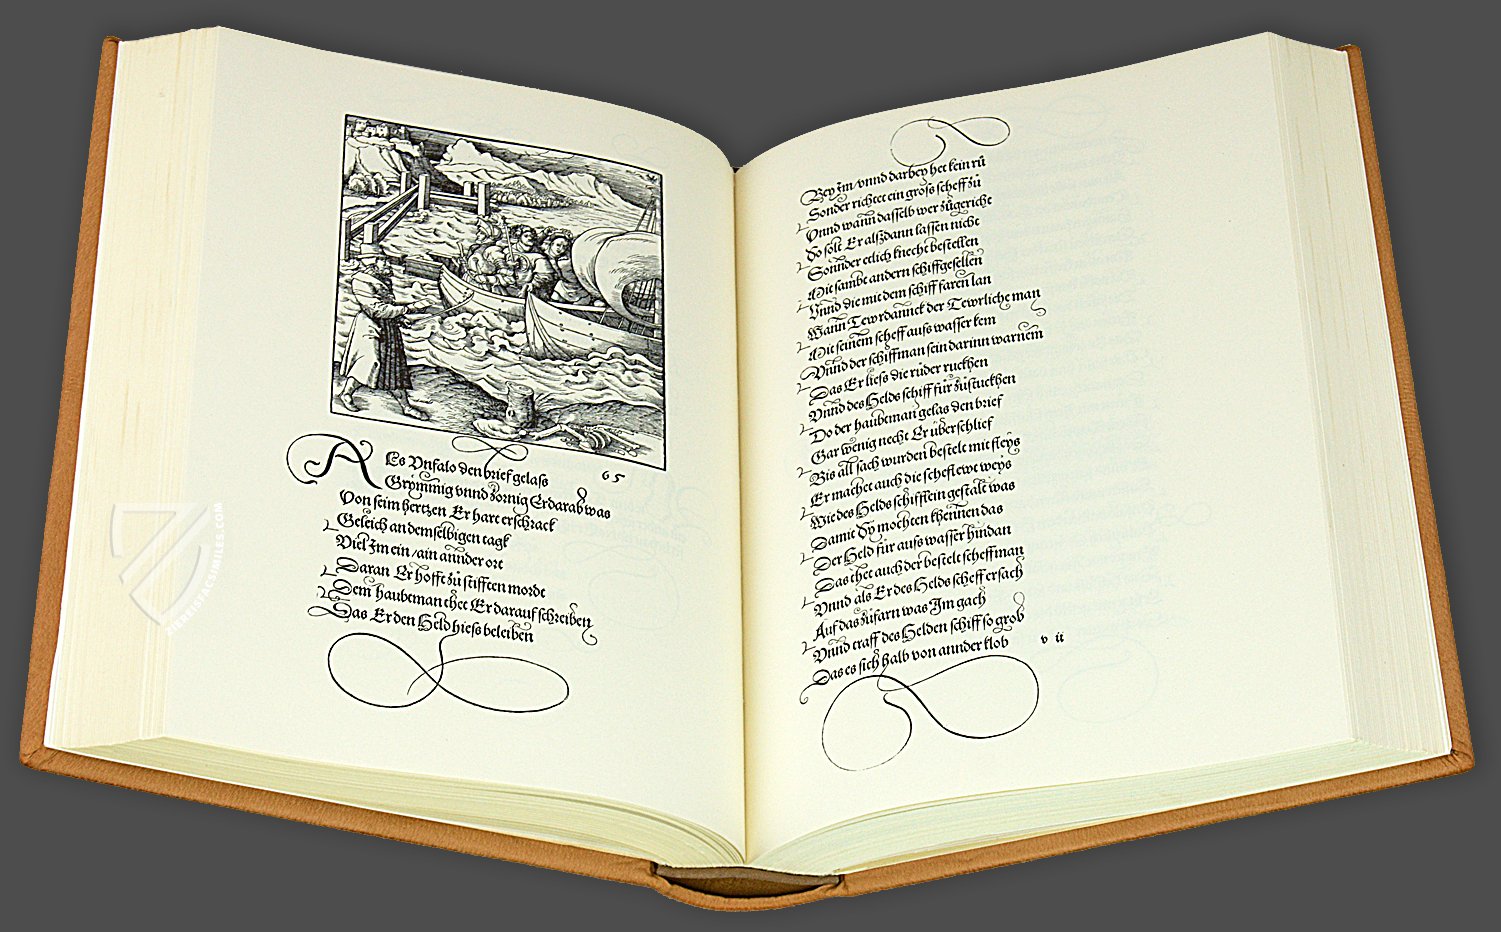 65
Als Vnfalo den brief gelass
Grymmig vnnd zornig Er darab was
Von seim hertzen Er hart erschrack
Geleich an demselbigen tagk
Viel Im ein / ain annder ort
Daran Er hofft zů stifften mordt
Dem haubtman thet Er darauf schreiben
Das Er den Held hiess beleiben
Bey Im / vnnd darbey het kein rů
Sonder richtet ein gross scheff zů
Vnnd wann dasselb wer zůgericht
So solt Er alssdann lassen nicht
Sonnder etlich knecht bestellen
Mit sambt andern schiffgesellen
Vnnd die mit dem schiff faren lan
Wann Tewrdannck der Tewrliche man
Mit seinem scheff aufs wasser kem
Vnnd der schiffman sein darinn warnem
Das Er liess die růder rucken
Vnnd des Helds schiff für zůstuckhen
Do der haubtman gelas den brief
Gar wenig necht Er überschlief
Bis all sach wurden bestelt mit fleys
Er machet auch die scheflewt weys
Wie des Helds schifflein gestalt was
Damit Sy mochten khennen das
Der Held für aufs wasser hindan
Das thet auch der bestelt scheffman
Vnnd als Er des Helds scheff ersach
Auf das zůfarn was Im gach
Vnnd traff des Helden schiff so grob
Das es sich halb von annder klob
v ii
ZIEREISFACSIMILES.COM